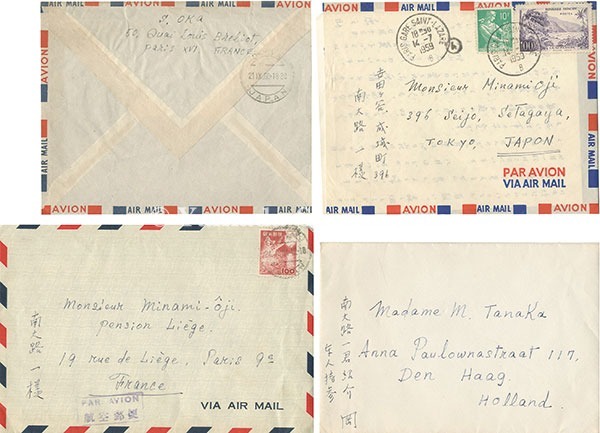 AVION
AIR MAIL
AVION
AIR MAIL
AVION
S. OKA
50, Quai Louis Blériot,
PARIS XVI, FRANCE
JAPAN
AIR MAIL
AIR MAIL
AVION
AIR MAIL
AVION
AIR MAIL
AVION
AVION
AIR MAIL
PARIS GARE SAINT-LAZARE
18H30
14-7
1959
8
1959
8
10F
100F
Monsieur Minami Ôji
396 Seijo, Setagaya,
TOKYO, JAPON
成城町
396
南大路一様
PAR AVION
VIA AIR MAIL
AIR MAIL
AVION
AIR MAIL
AVION
100
Monsieur Minami-Ôji
pension Liège.
19 rue de Liège, Paris 9e
France
南大路一様
PAR AVION
航空郵便
VIA AIR MAIL
Madame M. Tanaka
Anna Paulownastraat 117,
Den Haag
Holland.
南大路一君紹介